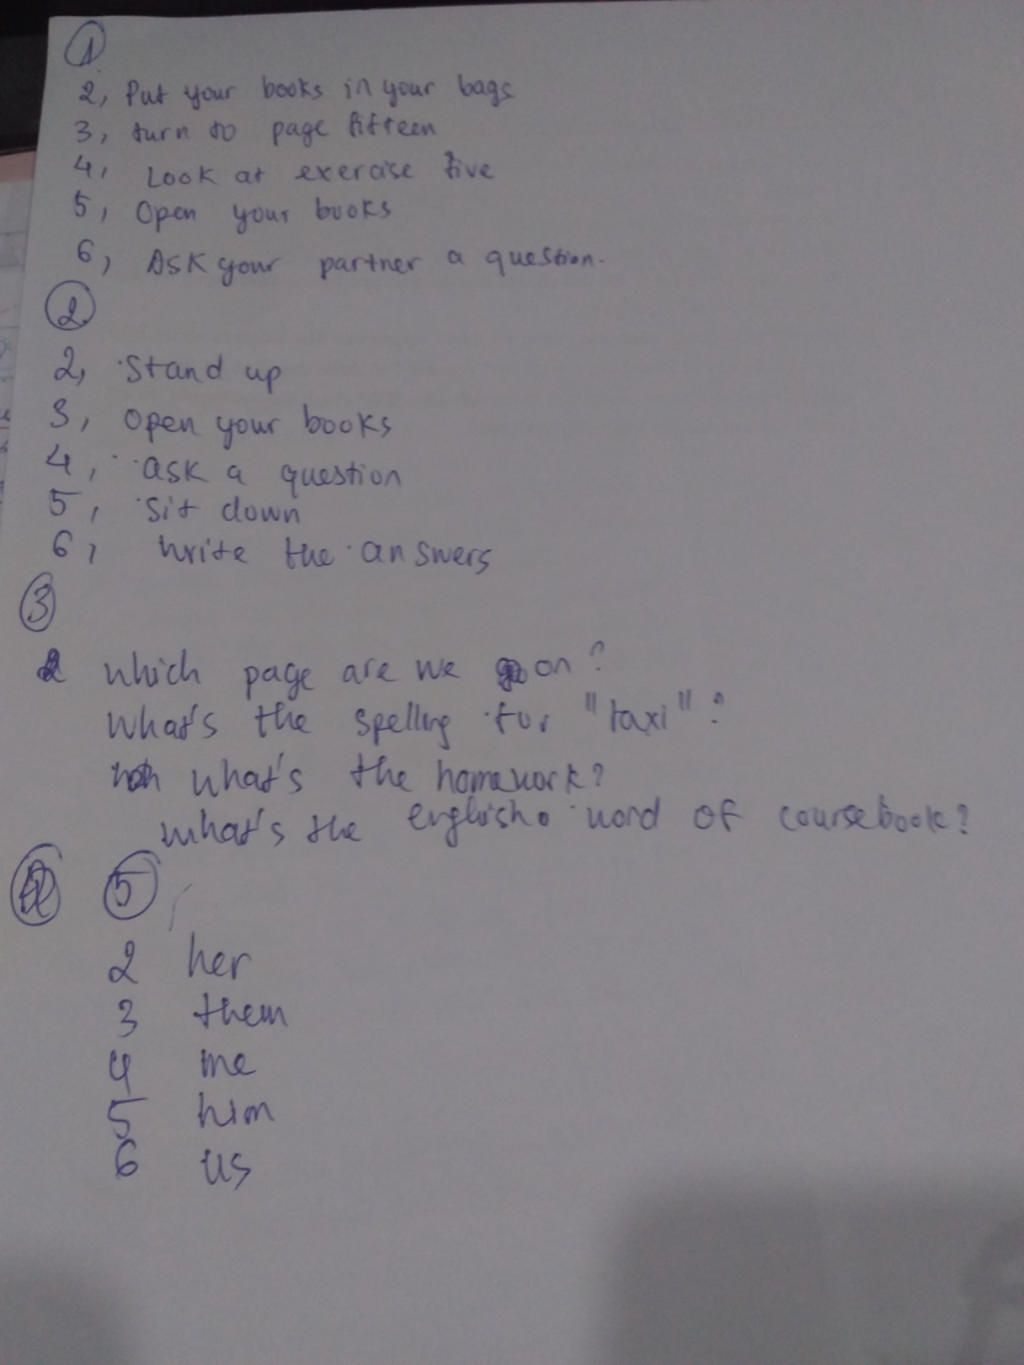 1
2, Put your books in your bags
3, turn to page fifteen
4, Look at exercise five
5, Open your books
6, Ask your partner a question.
2
2, Stand up
3, Open your books
4, ask a question
5, Sit down
6, write the answers
3
2 Which page are we on?
What's the spelling for "taxi"?
what's the homework?
what's the english word of coursebook?
5
2 her
3 them
4 me
5 him
6 us